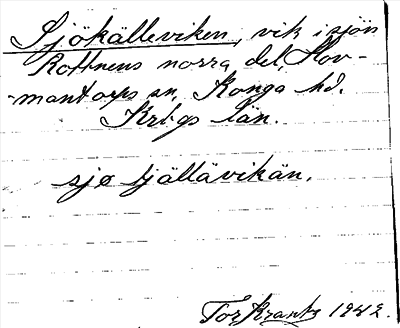 Sjökälleviken, vik i sjön
Rottnens norra del, Hov-
mantorps sn, Konga hd.
Krbgs län.
sjø tjällävikän.
Tor Krantz 1942.